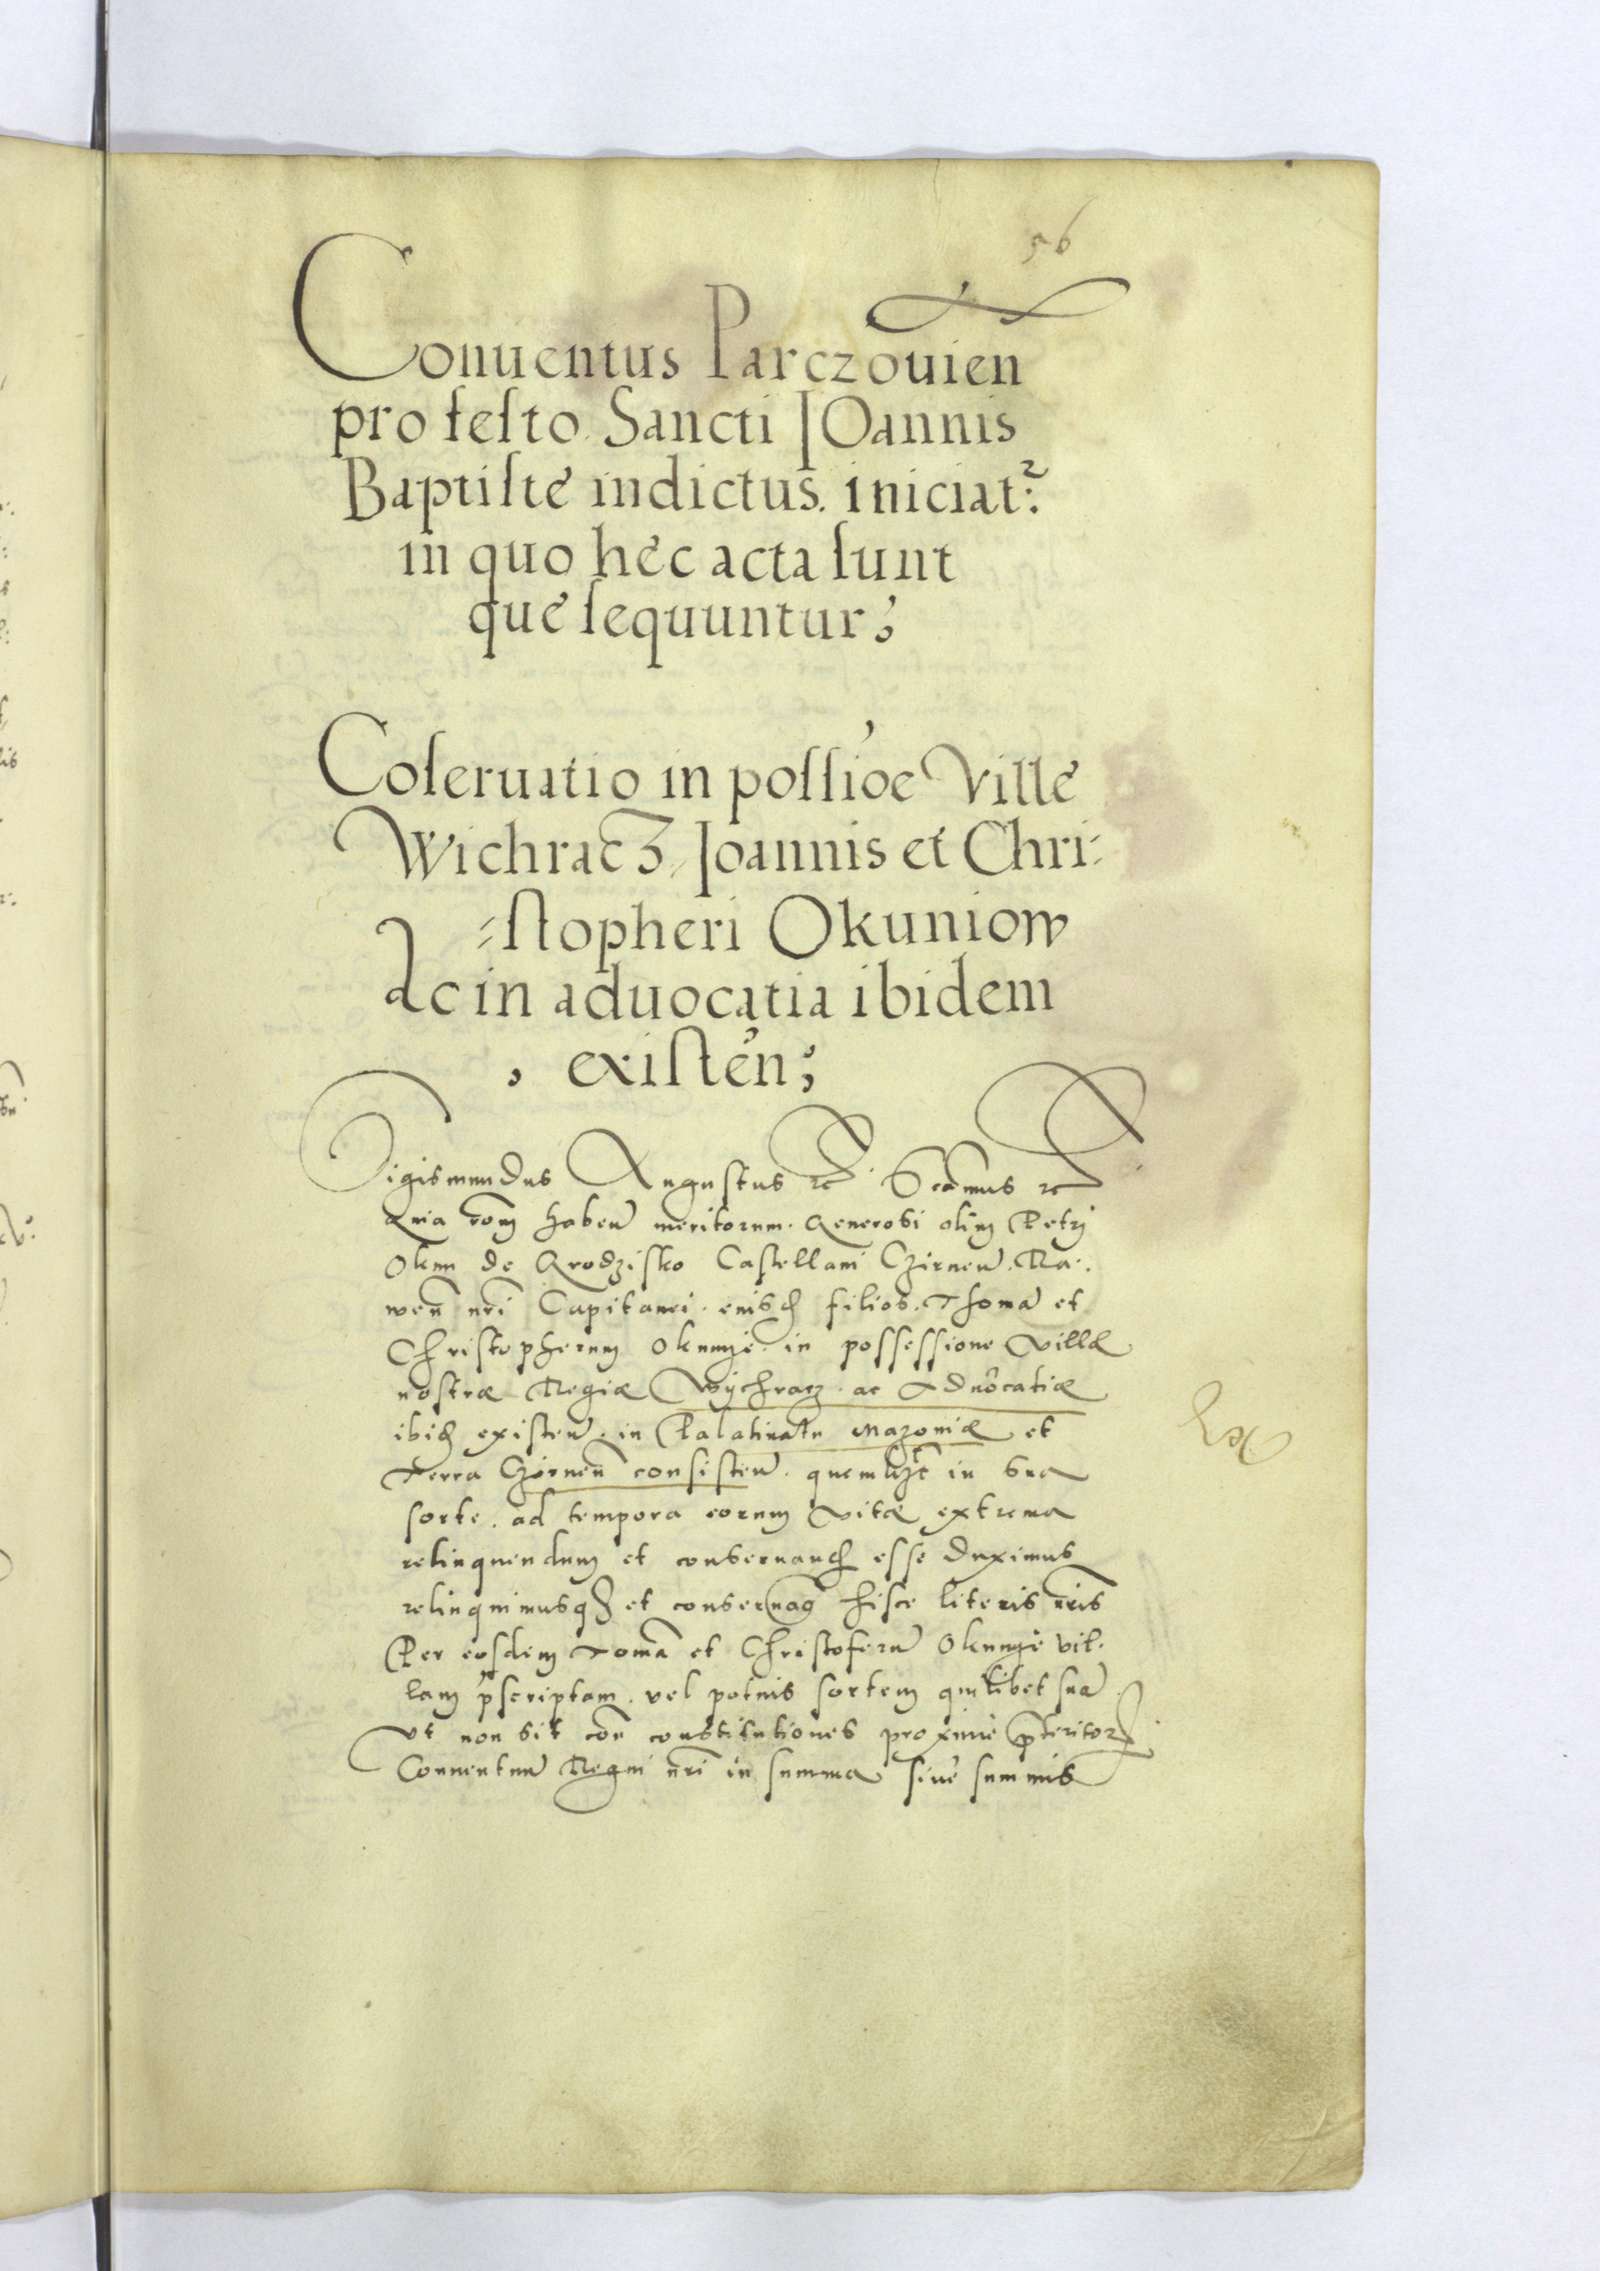 56
Conuentus Parczouien
pro festo Sancti IOannis
Baptiste indictus. iniciat:
in quo hec acta sunt
que sequuntur;
Coseruatio in possioe Ville
Wichracz, Joannis et Chri:
=stopheri Okuniow
Ac in aduocatia ibidem
existen;
Sigismundus Augustus etc. Significamus etc
Quia rom haben meritorum. Generosi olim Petrj
Okun de Grodzisko Castellani Czirnen. Ra:
wen nri Capitanei. eiusd filios. Thoma et
Christopherum Okunye. in possessione villæ
nostræ Regiæ Wychracz. ac Aduocatiæ
ibid existen. in Palatinatu Mazoniæ et
Terra Czirnen consisten. quemlibet in sua
sorte. ad tempora eorum vitæ extrema
relinquendum et conseruand esse duximus
relinquimusq et conseruamus hisce literis nris
Per eosdem Toma et Christoferu Okunye vil-
lam pscriptam. vel potius sortem quilibet sua
Vt non sit con constitutiones proxime pteritor
Conuentuu Regni nri in summa siue summis